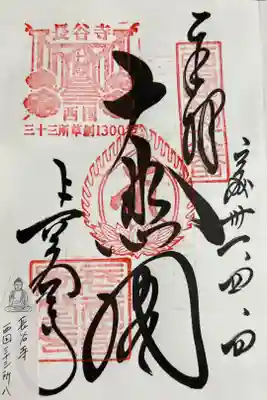 奉拝
平成卅一、四、四
長谷寺
西国
三十三所草創1300年
大悲閣
長谷寺
長谷寺
西国三十三所八